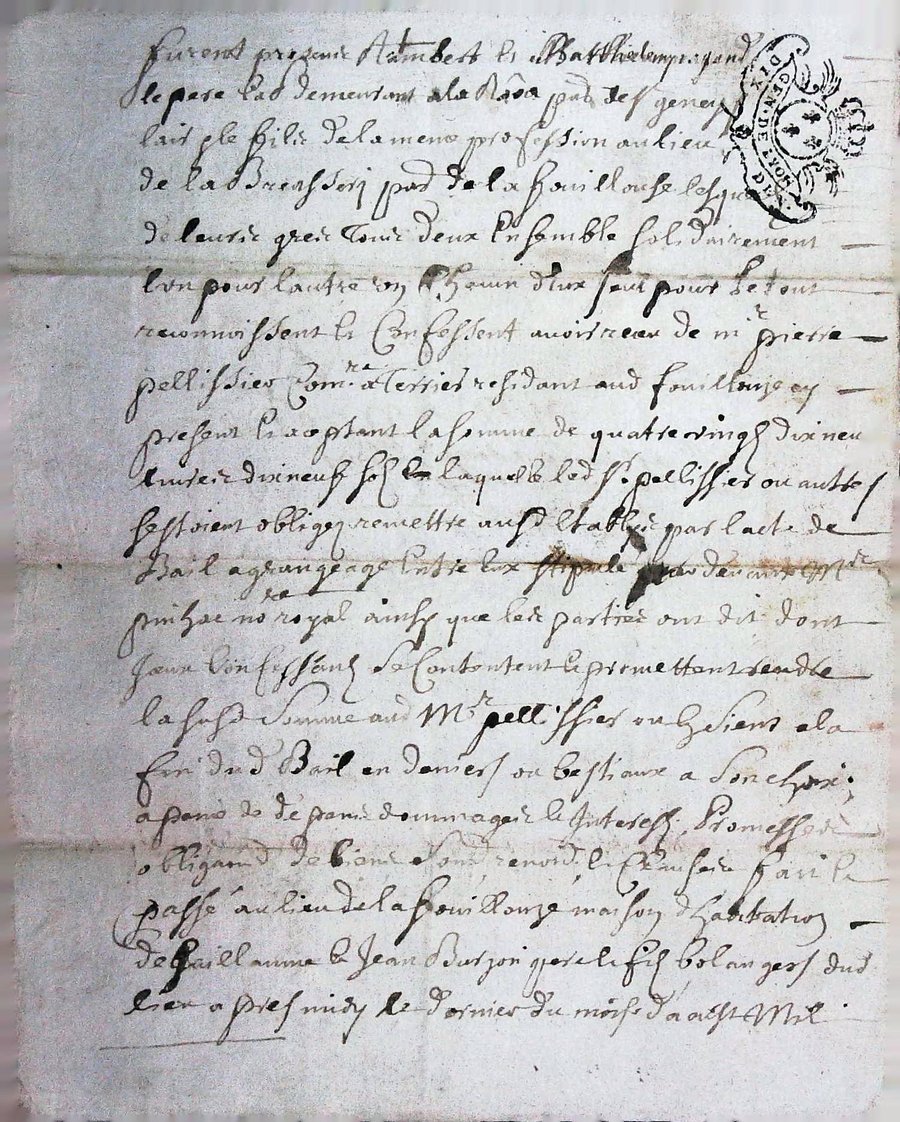 furent presens Rambert et Matthieu
le pere lad demeurant a la par de St geney
lair et le filz de la mesme profession au lieu
de la par de la fouillouse lesquelz
de leurs grez tous deux Ensemble solidairement
l'un pour lautre et un Chacun d'eux seul pour le tout
reconnoissent et Confessent avoir receu de mr pierre
pellissier Comre a Terrier residant aud fouillouze icy
present et acceptant la somme de quatre vingtz dix neuf
livres dix neuf solz laquelle led Sr pellissier ou autres
sestoient obligez remettre ausd establis par lacte de
Bail a grangeage Entre Eux stipulé par devant Me
no re royal ainsy que les parties ont dit dont
Jceux Confessantz Se Contentent et promettent rendre
la susd Somme aud Mr pellissier ou les siens a la
fin dud Bail en deniers ou bestiaux a Son choix
a peine de depans dommages et Interestz Promesses
obligaon de biens Soub renon et Clauses fait et
passé au lieu de la fouillouze maison d'habitation
de Guillaume et Jean pere et filz bolangers dud
lieu apres midy le dernier du mois daoust Mil
GEN. DE LYON
DIX DEN.